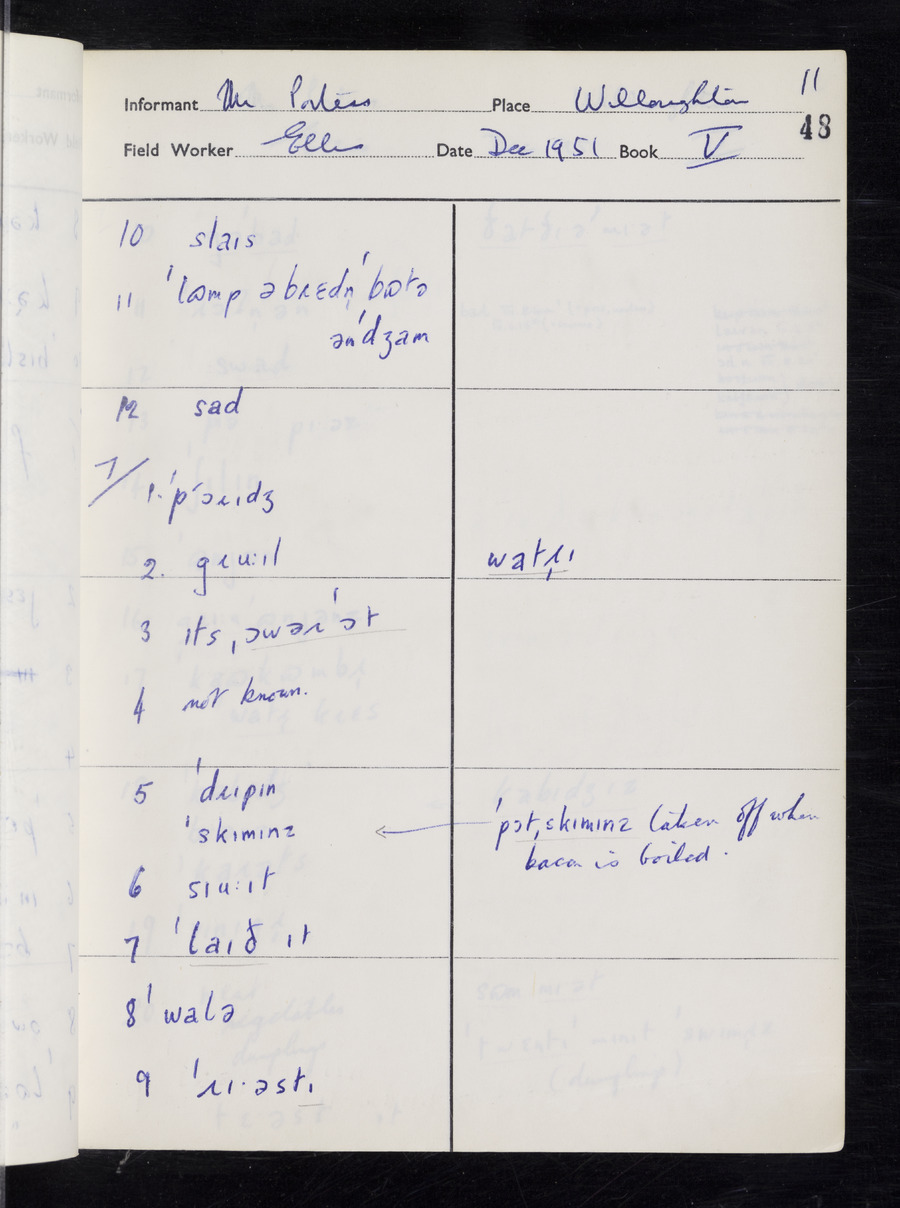 11
Informant Mr Place Willoughton
48
Field Worker Ellis Date Dec 1951 Book V
10 slaɪs
11 ˈlɷmp əbɹɛdn̩ ˈbɷtə
ənˈdʒam
12 sad
7/ 1. ˈpɔɹɪdʒ
2. gɹu:ɪl watɹ̩ɪ
3 ɪts ˌəwəɹˈət
4 not known.
5 ˈdɹɪpɪn
ˈskɪmɪnz ← ˈpɔtˌskɪmɪnz taken off when
bacon is boiled.
6 sɪu:ɪt
7 ˈlaɪð ɪt
8 ˈwalə
9 ˈɹɪ·əstɪ